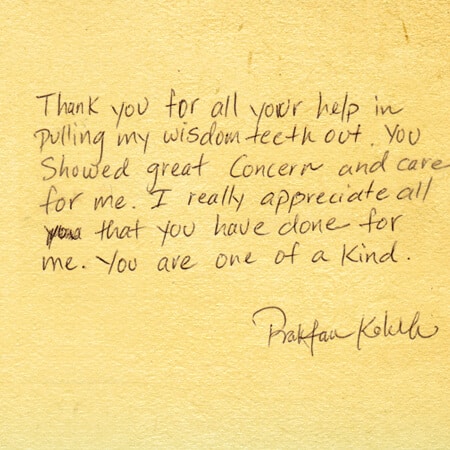 Thank you for all your help in
pulling my wisdom teeth out. You
Showed great Concern and care
for me. I really appreciate all
that you have done for
me. You are one of a Kind.